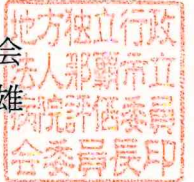 会
雄
地方独立行政
法人那覇市立
病院評価委員
会委員長印